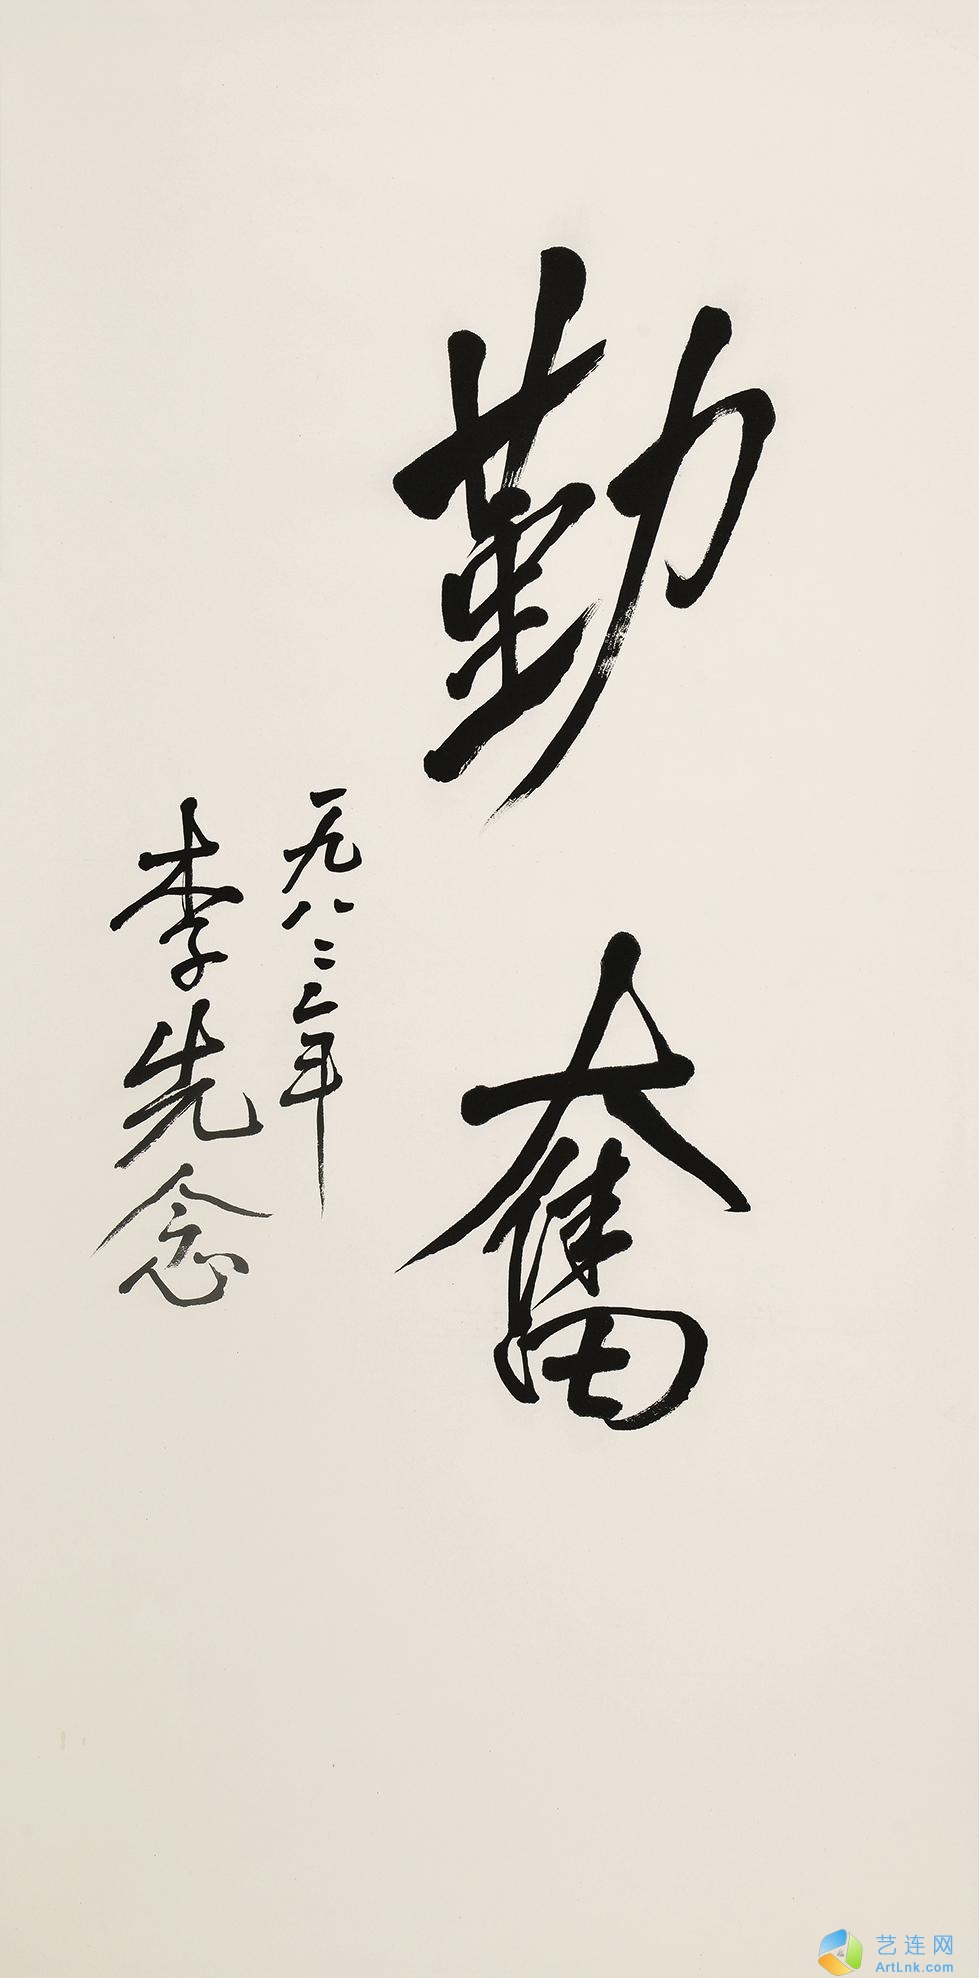 勤奮
一九八二年
李先念
艺连网
ArtLnk.com